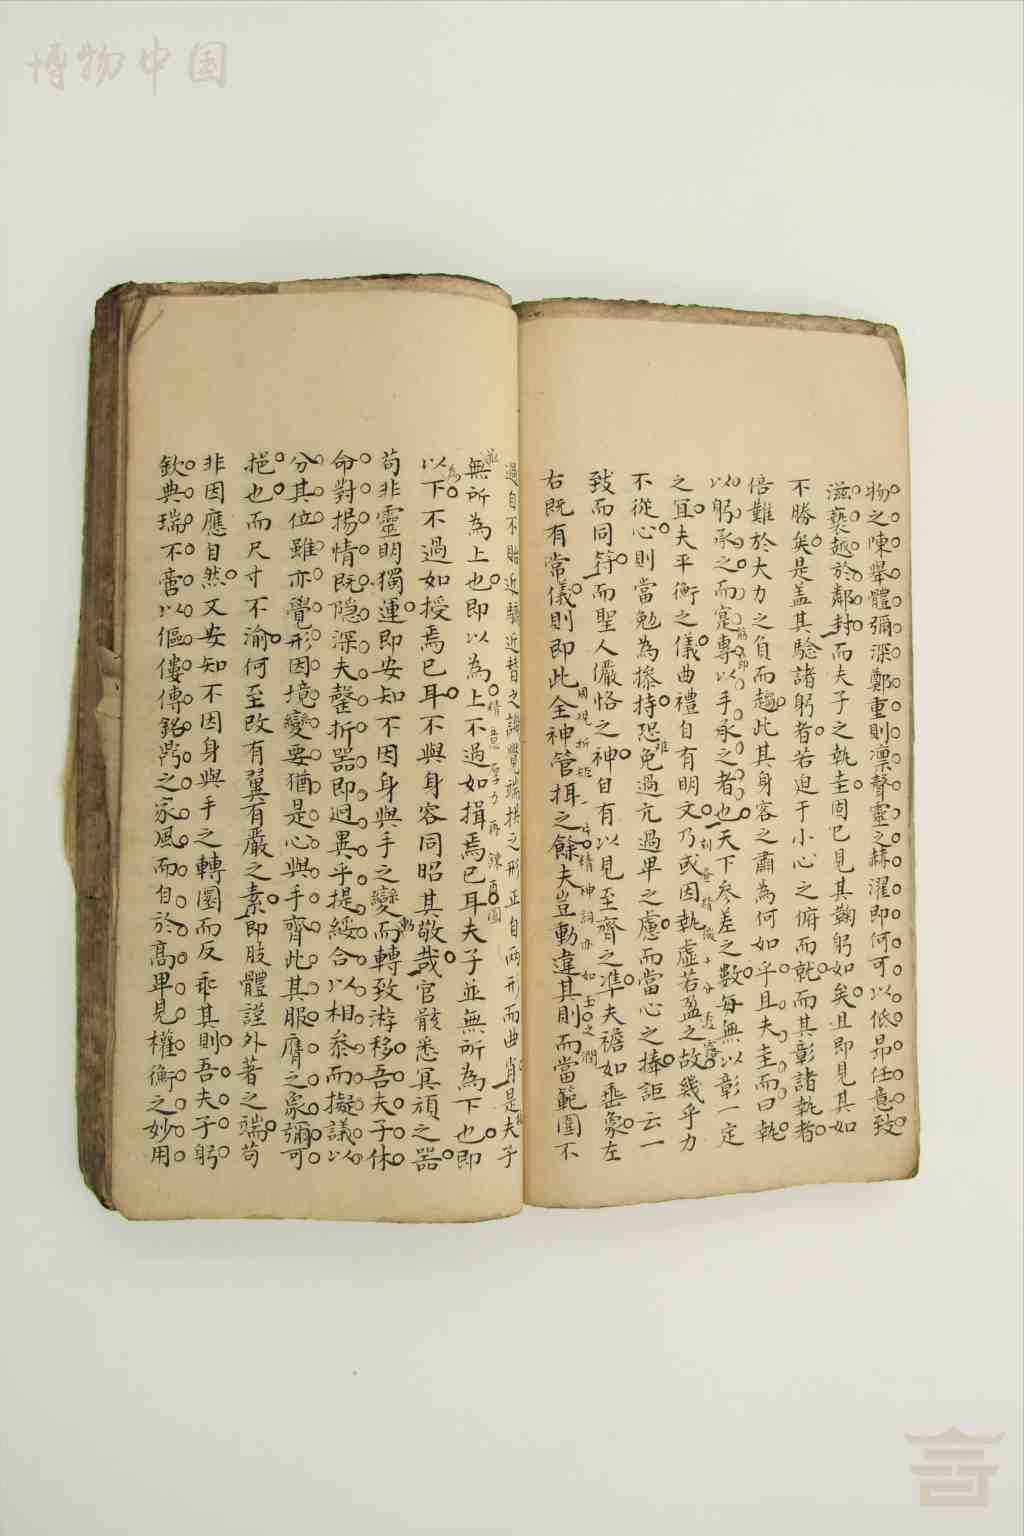 博物中国
物之陳舉體彌深鄭重則凛聲靈之赫濯即何可以低昂任意致
滋褻越於鄰封而夫子之執圭固已見其鞠躬如矣且即見其如
不勝矣是盖其騐諸躬者若迫于小心之俯而就而其彰諸執者
倍難於大力之負而趨此其身容之肅為何如乎且夫圭而曰執
以躬承之而寔專以手承之者也天下參差之數每無以彰一定
之宜夫平衡之儀曲禮自有明文乃或因執虛若盈之故幾乎力
不從心則當勉為摻持恐免過亢過卑之慮而當心之捧詎云一
致而同符而聖人儼恪之神自有以見至齊之準夫襜如垂象左
右既有常儀則即此全神管揖之餘夫豈動違其則而當範圍不
過自不貽近驕近昔之譏覺瑞拱之形正自兩形而曲肖是夫子
無所為上也即以為上不過如揖焉已耳夫子並無所為下也即
以下不過如授焉已耳不與身容同昭其敬哉官骸悉冥頑之器
苟非靈明獨運即安知不因身與手之變而轉致游移吾夫子休
命對揚情既隐深夫罄折器即迥異乎提綏合以相叅而擬議以
分其位雖亦覺形因境變要猶是心與手齊此其服膺之象彌可
挹也而尺寸不渝何至改有翼有嚴之素即肢體謹外著之端苟
非因應自然又安知不因身與手之轉圜而反乖其則吾夫子躬
欽典瑞不啻以傴僂傳銘鼎之家風而自於高卑見權衡之妙用